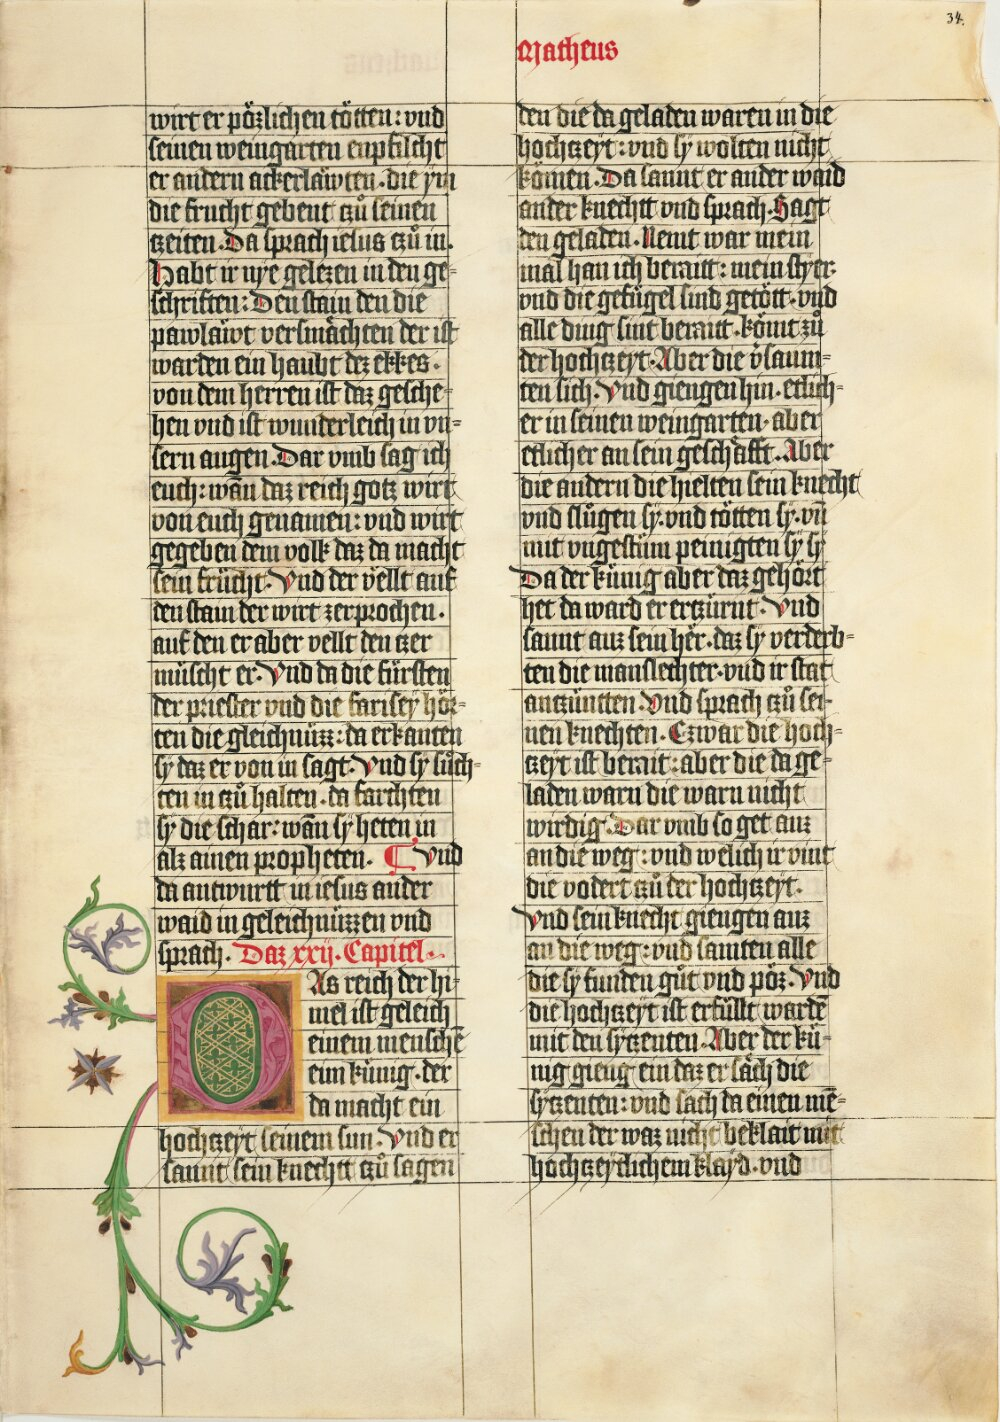 34.
Matheus
wirt er pözlichen tötten: vnd
seinen weingarten enpfilcht
er andern ackerläwten. die ym
die frucht gebent tzů seinen
tzeiten. Da sprach iesus tzů in.
Habt ir nye gelezen in den ge=
schriften: Den stain den die
pawläwt versmächten der ist
warden ein haubt dez ekkes.
von dem herren ist daz gesche=
hen vnd ist wunderleich in vn=
sern augen. Dar vmb sag ich
euch: wañ daz reich gotz wirt
von euch genamen: vnd wirt
gegeben dem volk daz da macht
sein frücht. Vnd der vellt auf
den stain der wirt zerprochen.
auf den er aber vellt den tzer
müscht er. Vnd da die fürsten
der priester vnd die farisey hör=
ten die gleichnüzz: da erkanten
sy daz er von in sagt. Vnd sy sůch=
ten in tzů halten. da farchten
sy die schar: wañ sy heten in
alz ainen propheten. ¶ Vnd
da antwurtt in iesus ander
waid in geleichnüzzen vnd
sprach. Daz xxij. Capitel.
DAs reich der hi=
mel ist geleich
einem mensche̅
eim künig. der
da macht ein
hochtzeyt seinem sun. Vnd er
sannt sein knechtt tzů sagen
den die da geladen waren in die
hochtzeyt: vnd sy wolten nicht
kömen. Da sannt er ander waid
ander knechtt vnd sprach. Sagt
den geladen. Nemt war mein
mal han ich beraitt: mein styer
vnd die geflügel sind getött. vnd
alle ding sint berait. kömt zů
der hochtzeyt. Aber die v̈saum=
ten sich. Vnd giengen hin. etlich=
er in seinen weingarten. aber
etlicher an sein geschäfft. Aber
die andern die hielten sein knecht
vnd slůgen sy. vnd tötten sy. vn̅
mit vngestüm peinigten sy sy
Da der künig aber daz gehört
het da ward er ertzürnt. Vnd
sannt auz sein her. daz sy verderb=
ten die manslechter. vnd ir stat
antzüntten. Vnd sprach tzů sei=
nen knechten. Czwar die hoch=
tzeyt ist berait: aber die da ge=
laden warn die warn nicht
wirdig. Dar vmb so get auz
an die weg: vnd welich ir vint
die vodert tzů der hochtzeyt.
Vnd sein knecht giengen auz
an die weg: vnd samten alle
die sy funden gůt vnd pöz. Vnd
die hochtzeyt ist erfüllt warde̅
mit den sytzenten. Aber der kü=
nig gieng ein daz er säch die
sytzenten: vnd sach da einen me̅=
schen der waz nicht beklait mit
hochtzeytlichem klayd. vnd